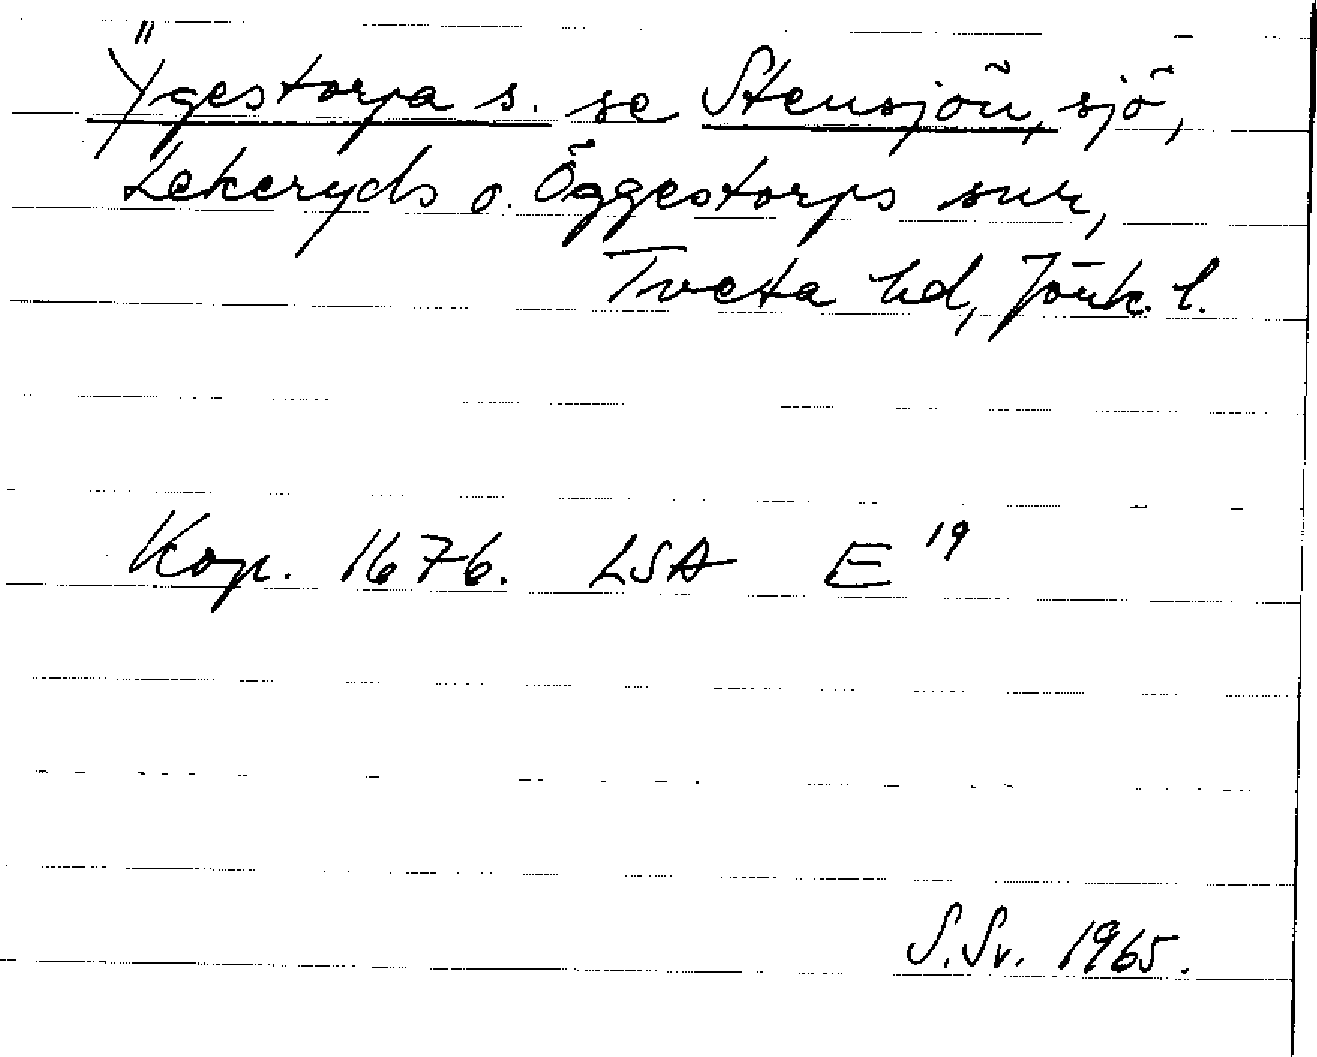 Ÿgestorpa s. se Stensjön, sjö,
Lekeryds o. Öggestorps snr,
Tveta hd, Jönk. l.
Kop. 1676. LSA E 19
S.Sv. 1965.